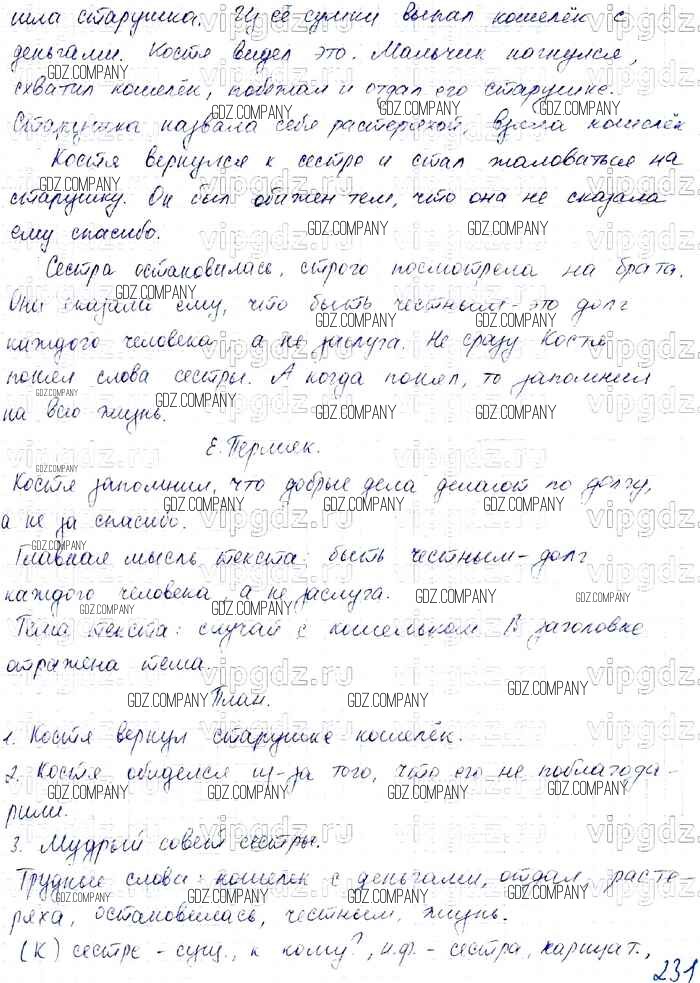 шла старушка. Из её сумки выпал кошелёк с
деньгами. Костя видел это. Мальчик нагнулся,
схватил кошелёк, побежал и отдал его старушке.
Старушка назвала себя растеряхой, взяла кошелёк
Костя вернулся к сестре и стал жаловаться на
старушку. Он был обижен тем, что она не сказала
ему спасибо.
Сестра остановилась, строго посмотрела на брата.
Она сказала ему, что быть честным - это долг
каждого человека, а не заслуга. Не сразу Костя
понял слова сестры. А когда понял, то запомнил
на всю жизнь.
Е. Пермяк.
Костя запомнил, что добрые дела делают по долгу,
а не за спасибо.
Главная мысль текста: быть честным - долг
каждого человека, а не заслуга.
Тема текста: случай с кошельком. В заголовке
отражена тема.
План.
1. Костя вернул старушке кошелёк.
2. Костя обиделся из-за того, что его не поблагода-
рили.
3. Мудрый совет сестры.
Трудные слова: кошелёк с деньгами, отдал, расте-
ряха, остановилась, честным, жизнь.
(К) сестре - сущ., к кому?, н.ф. - сестра, нарицат.,
231